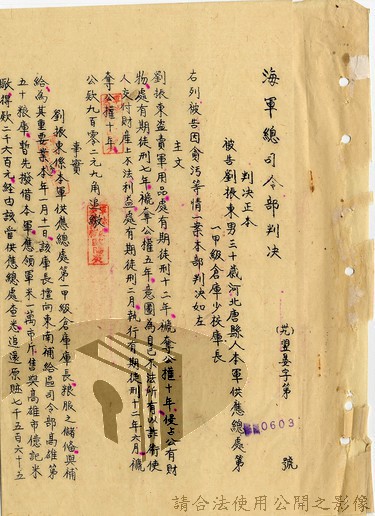 海軍總司令部判決
判決正本
(光)翌晏字第 號
0603
被告劉振東男三十歲河北唐縣人本軍供應總處第
一甲級倉庫少校庫長
右列被告因貪污等情一案本部判決如左
主文
劉振東盜賣軍用品處有期徒刑十二年褫奪公權十年侵占公有財
物處有期徒刑七年褫奪公權五年意圖為自己不法所有以詐術使
人交付財產上不法利益處有期徒刑二月執行有期徒刑十二年六月褫
奪公權十年
公款九百零二元九角追繳
事實
劉振東係本軍供應總處第一甲級倉庫庫長糧服之儲備與補
給為其重要業務本年一月一日該庫長擅向東南補給區司令部高雄第
五十糧庫暫先撥借本軍應領軍米一萬市斤售與高雄市億記米
得款二千六百元經由該當供應總處查悉追還原賍七千五百六十五
請合法使用公開之影像